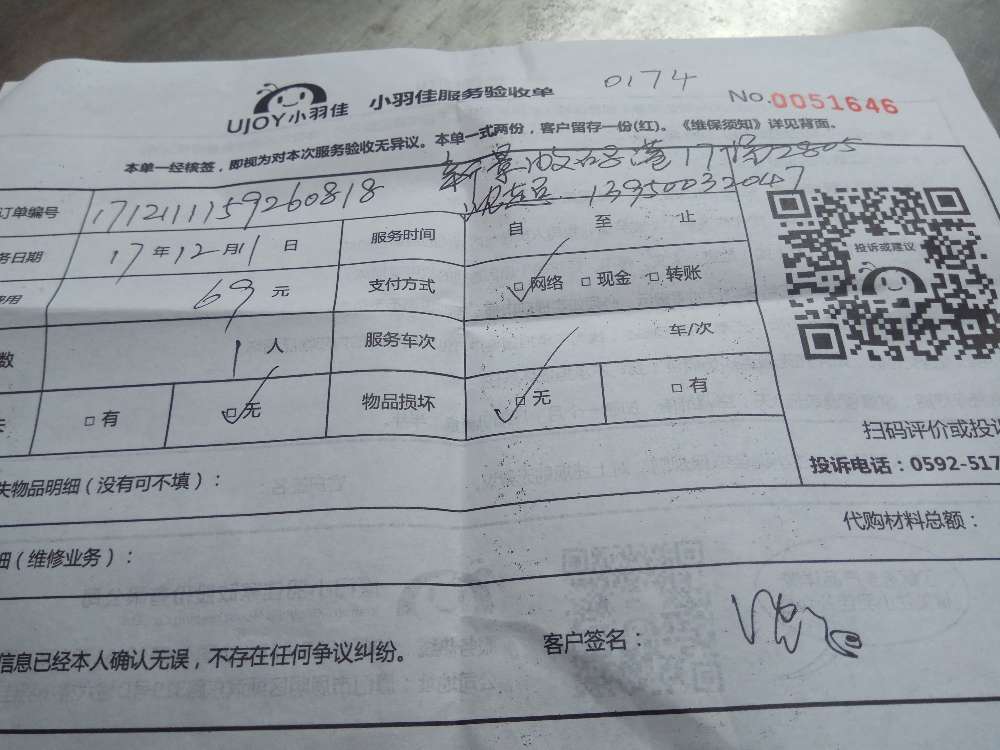 UJOY小羽佳 小羽佳服务验收单 0174 No.0051646
本单一经核签，即视为对本次服务验收无异议。本单一式两份，客户留存一份(红)。《维保须知》详见背面。
17栋2805
订单编号 1712111159260818 13950032047
务日期 17年12月11日 服务时间 自 至 止
投诉或建议
费用 69元 支付方式 □网络 □现金 □转账
数 1人 服务车次 车/次
□有 □无 物品损坏 □无 □有
扫码评价或投诉
投诉电话：0592-517
失物品明细（没有可不填）：
代购材料总额：
细（维修业务）：
信息已经本人确认无误，不存在任何争议纠纷。
客户签名：